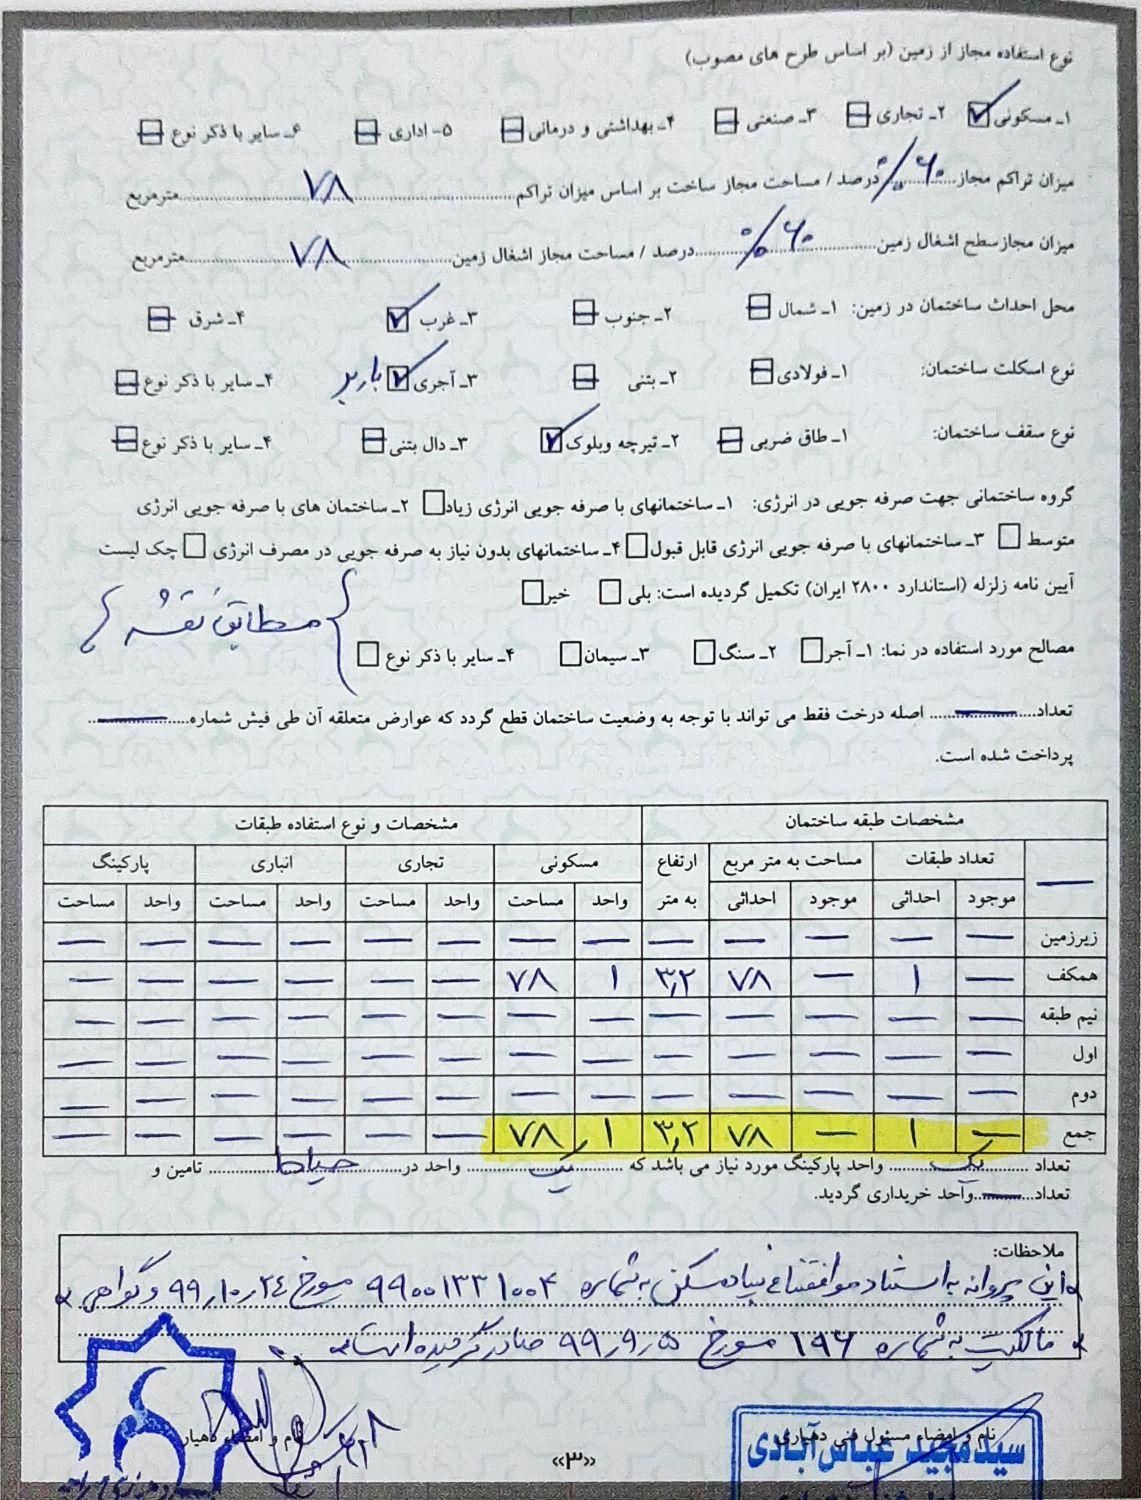 نوع استفاده مجاز از زمین (بر اساس طرح های مصوب)
۱ـ مسکونی ۲ـ تجاری ۳ـ صنعتی ۴ـ بهداشتی و درمانی ۵- اداری ۶ـ سایر با ذکر نوع
میزان تراکم مجاز ۶۰٪ درصد / مساحت مجاز ساخت بر اساس میزان تراکم ۷۸ مترمربع
میزان مجاز سطح اشغال زمین ۶۰٪ درصد / مساحت مجاز اشغال زمین ۷۸ مترمربع
محل احداث ساختمان در زمین: ۱ـ شمال ۲ـ جنوب ۳ـ غرب ۴ـ شرق
نوع اسکلت ساختمان: ۱ـ فولادی ۲ـ بتنی ۳ـ آجری باربر ۴ـ سایر با ذکر نوع
نوع سقف ساختمان: ۱ـ طاق ضربی ۲ـ تیرچه وبلوک ۳ـ دال بتنی ۴ـ سایر با ذکر نوع
گروه ساختمانی جهت صرفه جویی در انرژی: ۱ـ ساختمانهای با صرفه جویی انرژی زیاد ۲ـ ساختمان های با صرفه جویی انرژی
متوسط ۳ـ ساختمانهای با صرفه جویی انرژی قابل قبول ۴ـ ساختمانهای بدون نیاز به صرفه جویی در مصرف انرژی چک لیست
آیین نامه زلزله (استاندارد ۲۸۰۰ ایران) تکمیل گردیده است: بلی خیر
{ مطابق نقشه }
مصالح مورد استفاده در نما: ۱ـ آجر ۲ـ سنگ ۳ـ سیمان ۴ـ سایر با ذکر نوع
تعداد — اصله درخت فقط می تواند با توجه به وضعیت ساختمان قطع گردد که عوارض متعلقه آن طی فیش شماره —
پرداخت شده است.
مشخصات طبقه ساختمان مشخصات و نوع استفاده طبقات
— تعداد طبقات مساحت به متر مربع ارتفاع مسکونی تجاری انباری پارکینگ
موجود احداثی موجود احداثی به متر واحد مساحت واحد مساحت واحد مساحت واحد مساحت
زیرزمین — — — — — — — — — — — — —
همکف — ۱ — ۷۸ ۳٫۲ ۱ ۷۸ — — — — — —
نیم طبقه — — — — — — — — — — — — —
اول — — — — — — — — — — — — —
دوم — — — — — — — — — — — — —
جمع — ۱ — ۷۸ ۳٫۲ ۱ ۷۸ — — — — — —
تعداد یک واحد پارکینگ مورد نیاز می باشد که یک واحد در حیاط تامین و
تعداد — واحد خریداری گردید.
ملاحظات:
این پروانه به استناد موافقتنامه بنیاد مسکن به شماره ۹۹۰۰۱۳۳۱۰۰۴ مورخ ۹۹٫۱۰٫۲۴ و گواهی
مالکیت به شماره ۱۹۶ مورخ ۹۹٫۹٫۵ صادر گردیده است
نام و امضاء مسئول فنی دهیاری
نام و امضاء دهیار
سید مجید عباس آبادی
«۳»